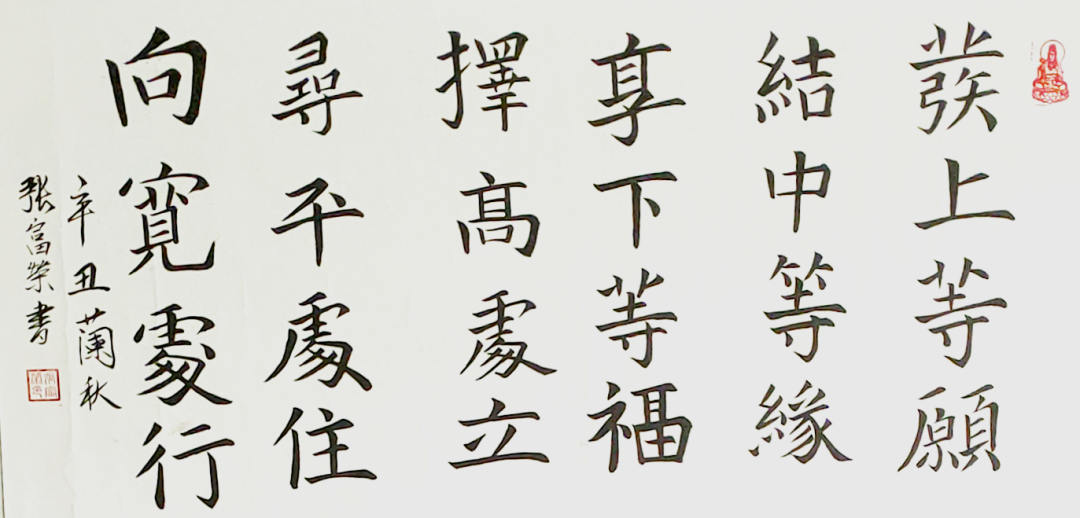 發上等願
結中等緣
享下等福
擇高處立
尋平處住
向寬處行
辛丑蘭秋
張富榮書